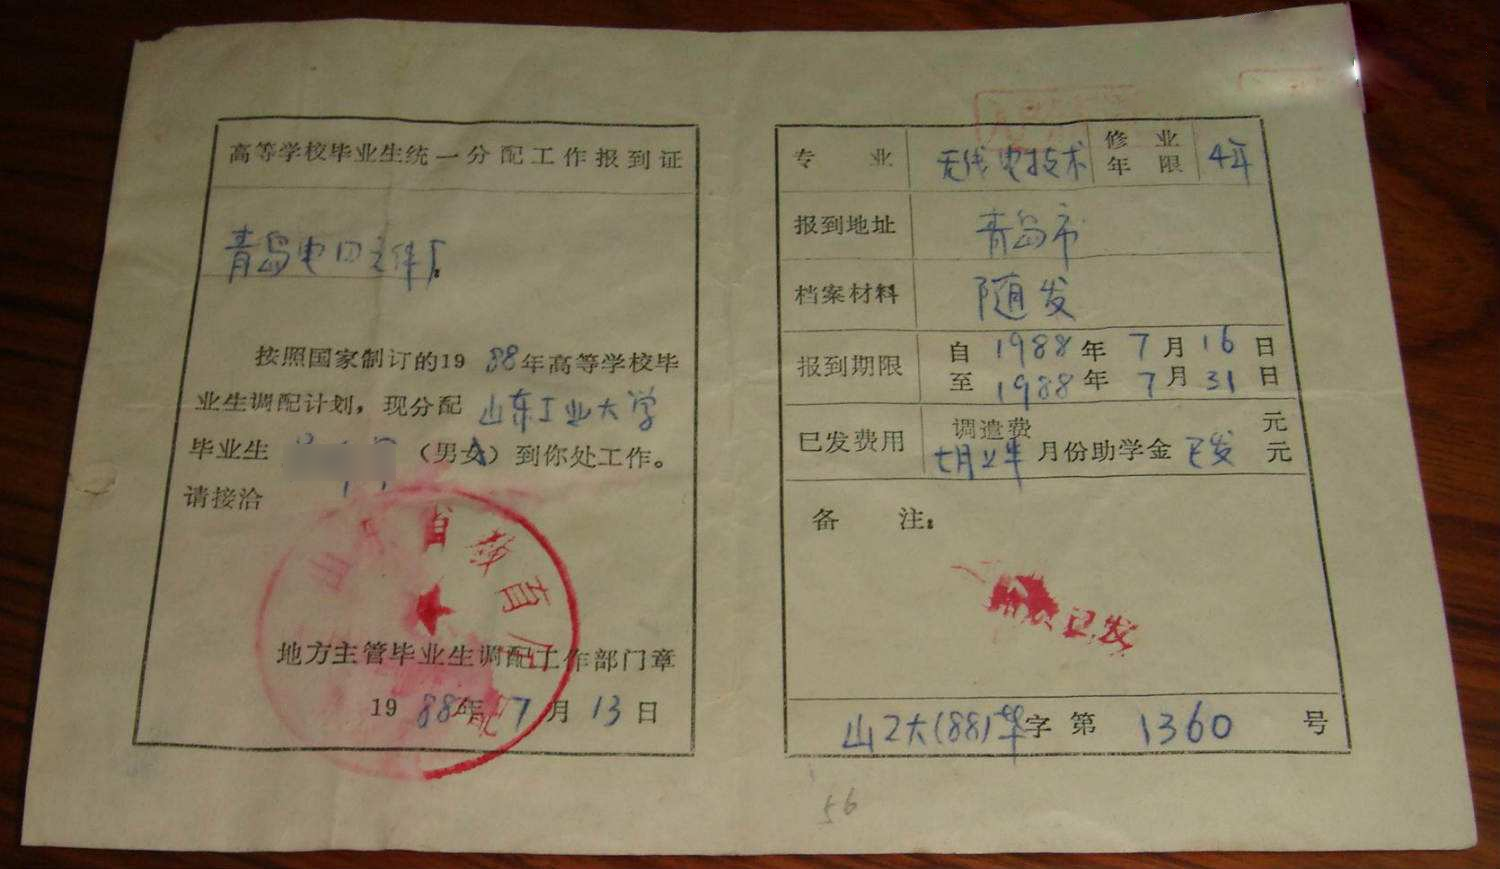 高等学校毕业生统一分配工作报到证
青岛电
按照国家制订的1988年高等学校毕
业生调配计划，现分配山东工业大学
毕业生（男女）到你处工作。
请接洽
山东省教育厅
地方主管毕业生调配工作部门章
1988年7月13日
专 业 无线电技术 修业年限 4年
报到地址 青岛市
档案材料 随发
报到期限 自1988年7月16日
至1988年7月31日
已发费用 调遣费 元
七月 月份助学金 已发 元
备 注：
已发
山工大(88)毕字第1360号
56